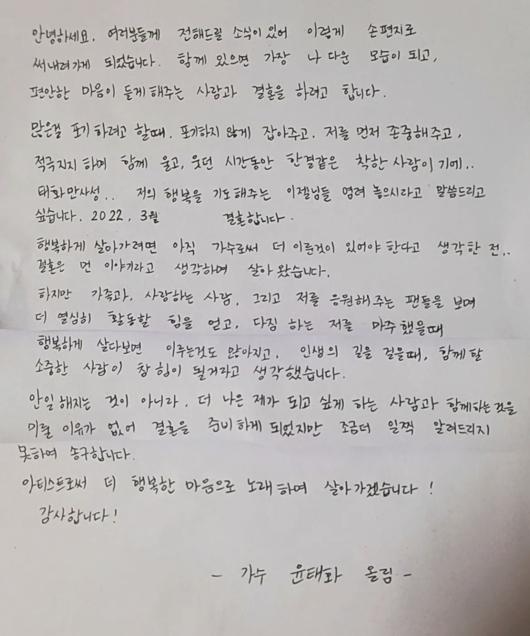 안녕하세요. 여러분들께 전해드릴 소식이 있어 이렇게 손편지로
써내려가게 되었습니다. 함께 있으면 가장 나 다운 모습이 되고,
편안한 마음이 들게 해주는 사람과 결혼을 하려고 합니다.
많은걸 포기하려고 할때, 포기하지 않게 잡아주고, 저를 먼저 존중해주고,
적극지지 하며 함께 울고, 웃던 시간동안 한결같은 착한 사람이기에..
태화만사성.. 저의 행복을 기도해주는 이젤님들 염려 놓으시라고 말씀드리고
싶습니다. 2022. 3월 결혼합니다.
행복하게 살아가려면 아직 가수로써 더 이룬것이 있어야 한다고 생각한 전..
결혼은 먼 이야기라고 생각하며 살아 왔습니다.
하지만 가족과, 사랑하는 사람, 그리고 저를 응원해 주는 팬들을 보며
더 열심히 활동할 힘을 얻고, 다짐 하는 저를 마주했을때
행복하게 살다보면 이루는것도 많아지고, 인생의 길을 걸을때, 함께할
소중한 사람이 참 힘이 될거라고 생각했습니다.
안일해지는 것이 아니라, 더 나은 제가 되고 싶게 하는 사람과 함께하는것을
미룰 이유가 없어 결혼을 준비하게 되었지만 조금더 일찍 알려드리지
못하여 송구합니다.
아티스트로써 더 행복한 마음으로 노래하며 살아가겠습니다!
감사합니다!
- 가수 윤태화 올림 -